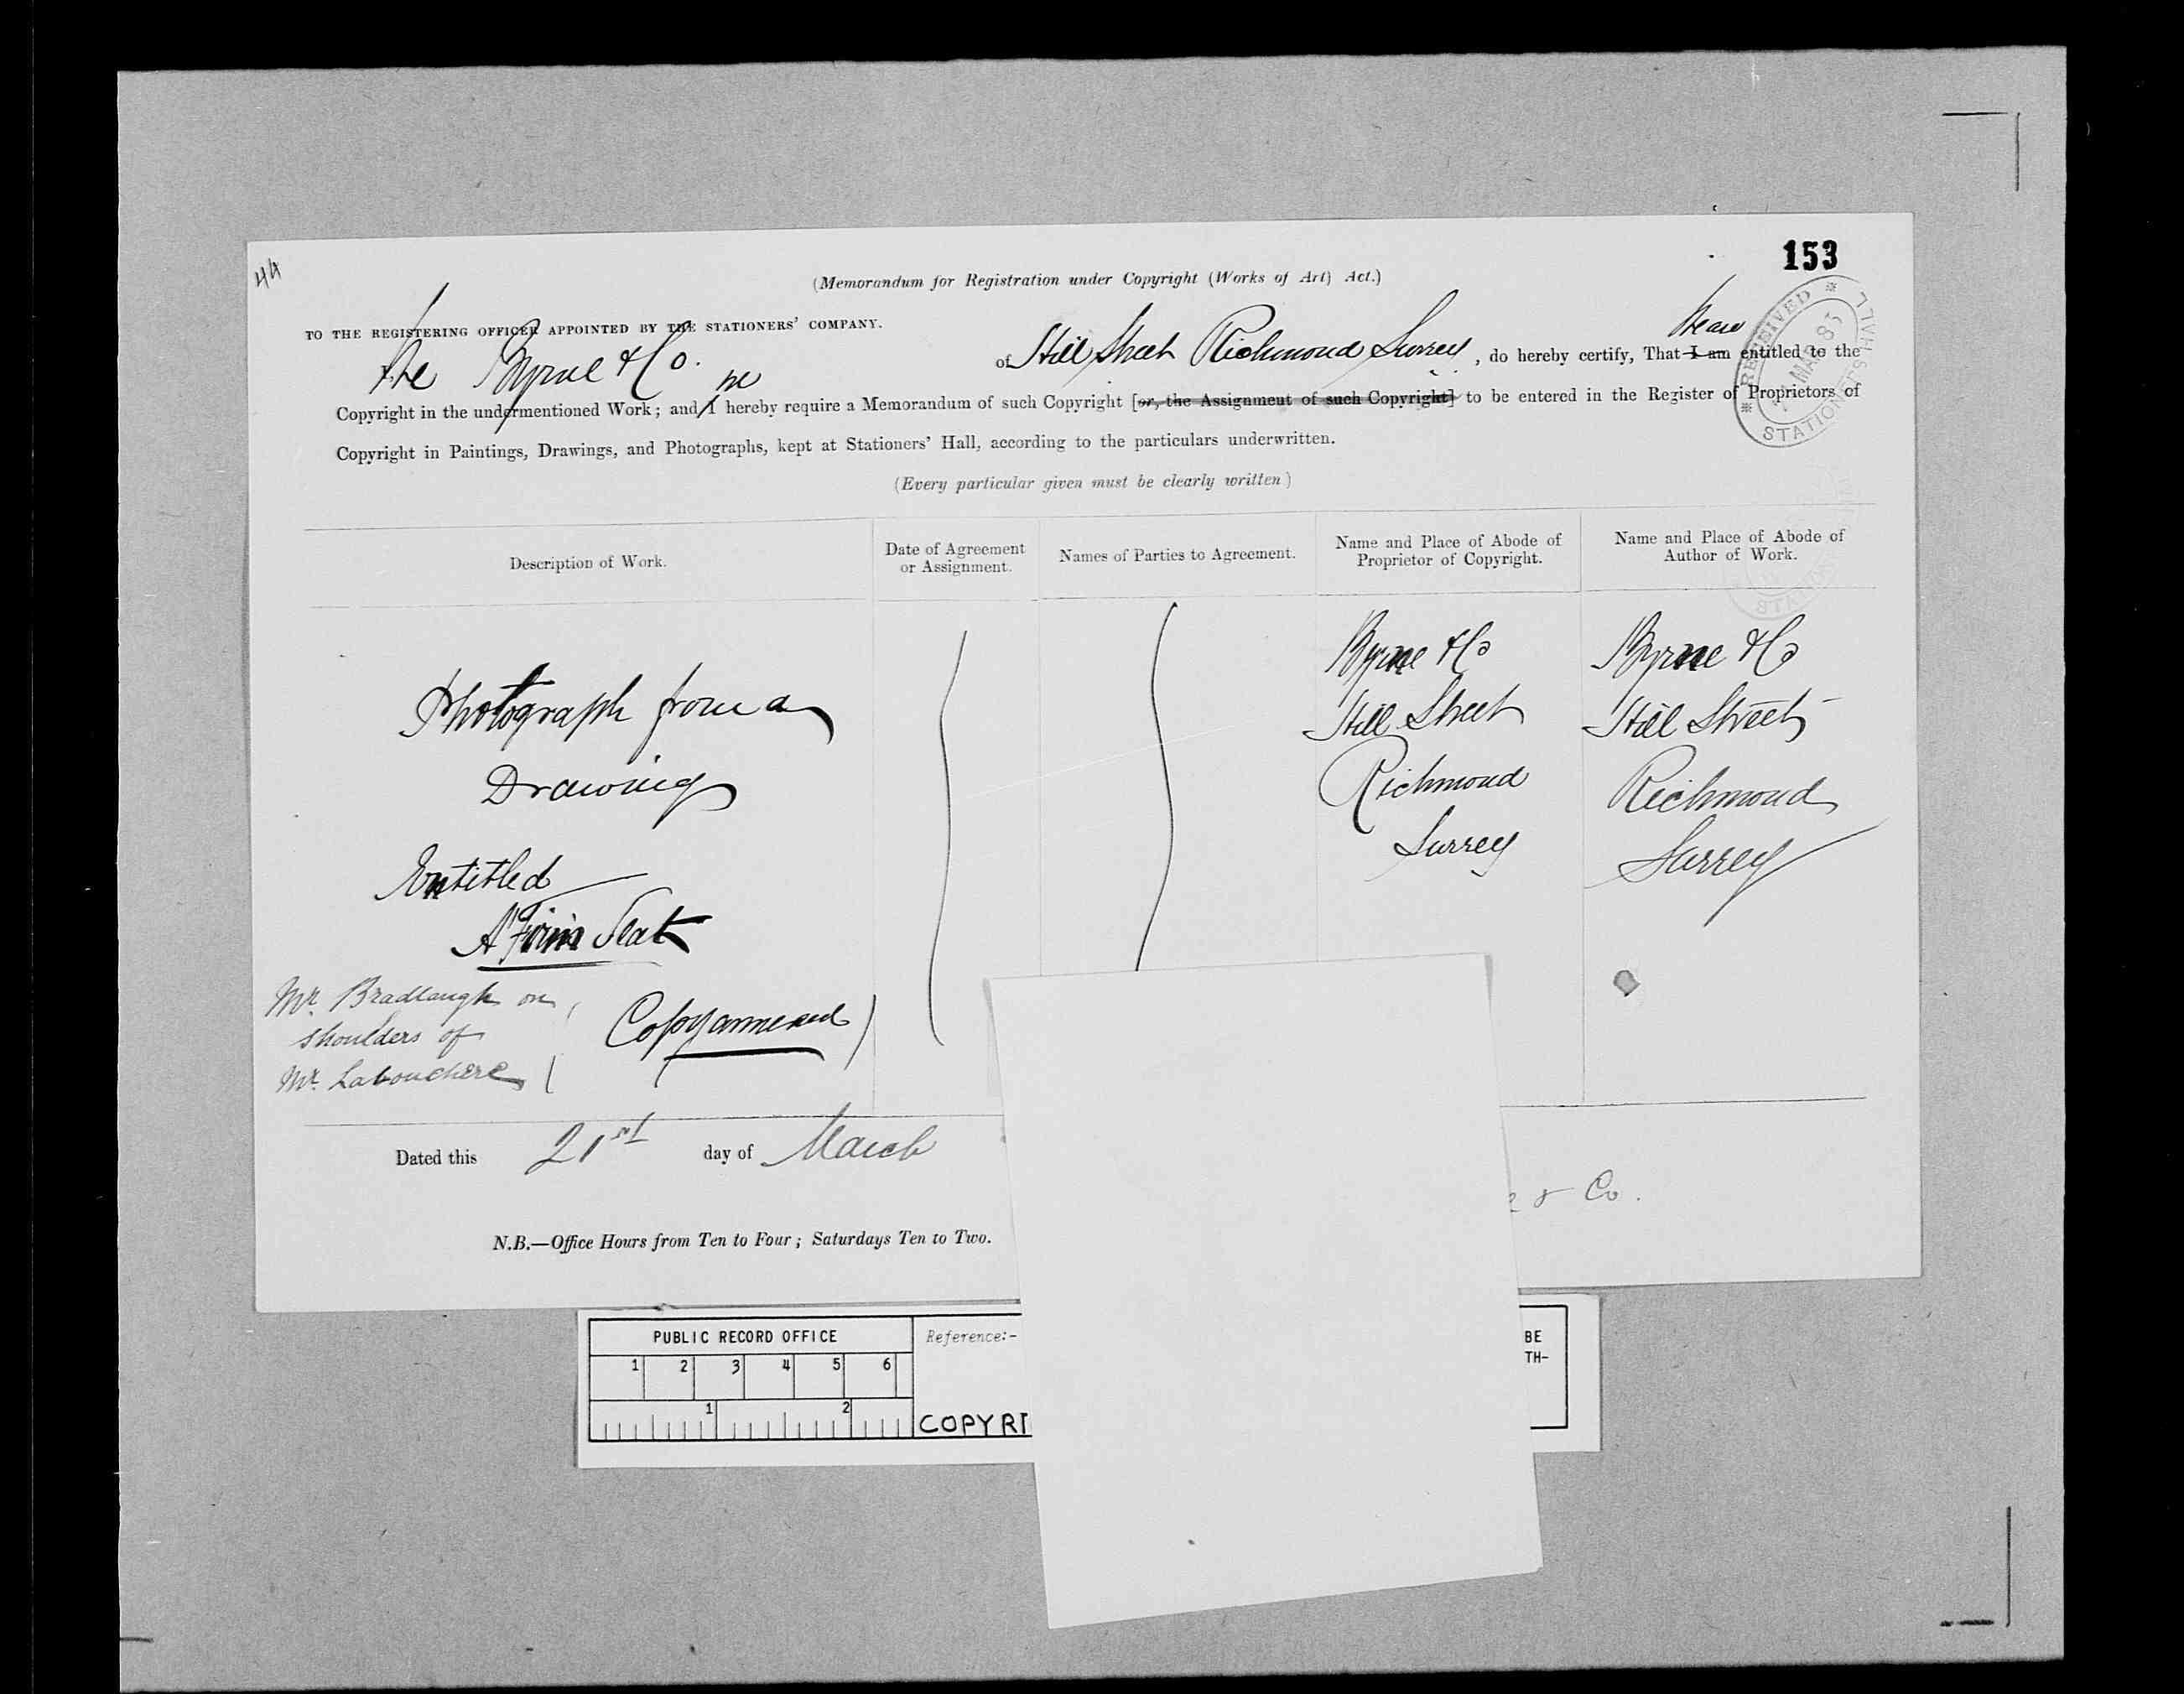 44
153
(Memorandum for Registration under Copyright (Works of Art) Act.)
TO THE REGISTERING OFFICER APPOINTED BY THE STATIONERS' COMPANY.
We are
We Byrne & Co. of Hill Street Richmond Surrey, do hereby certify, That I am entitled to the
we
Copyright in the undermentioned Work; and I hereby require a Memorandum of such Copyright [or, the Assignment of such Copyright] to be entered in the Register of Proprietors of
Copyright in Paintings, Drawings, and Photographs, kept at Stationers' Hall, according to the particulars underwritten.
(Every particular given must be clearly written)
RECEIVED
MAR 83
STATIONERS' HALL
Description of Work.
Date of Agreement
or Assignment.
Names of Parties to Agreement.
Name and Place of Abode of
Proprietor of Copyright.
Name and Place of Abode of
Author of Work.
Photograph from a
Drawing
Entitled
"A Firm Seat
Mr. Bradlaugh on
shoulders of
Mr. Labouchere
(Copy annexed)
Byrne & Co
Hill Street
Richmond
Surrey
Byrne & Co
Hill Street
Richmond
Surrey
Dated this 21st day of March
& Co.
N.B.—Office Hours from Ten to Four; Saturdays Ten to Two.
PUBLIC RECORD OFFICE
1 2 3 4 5 6
1 2
Reference:-
COPYRI
BE
TH-